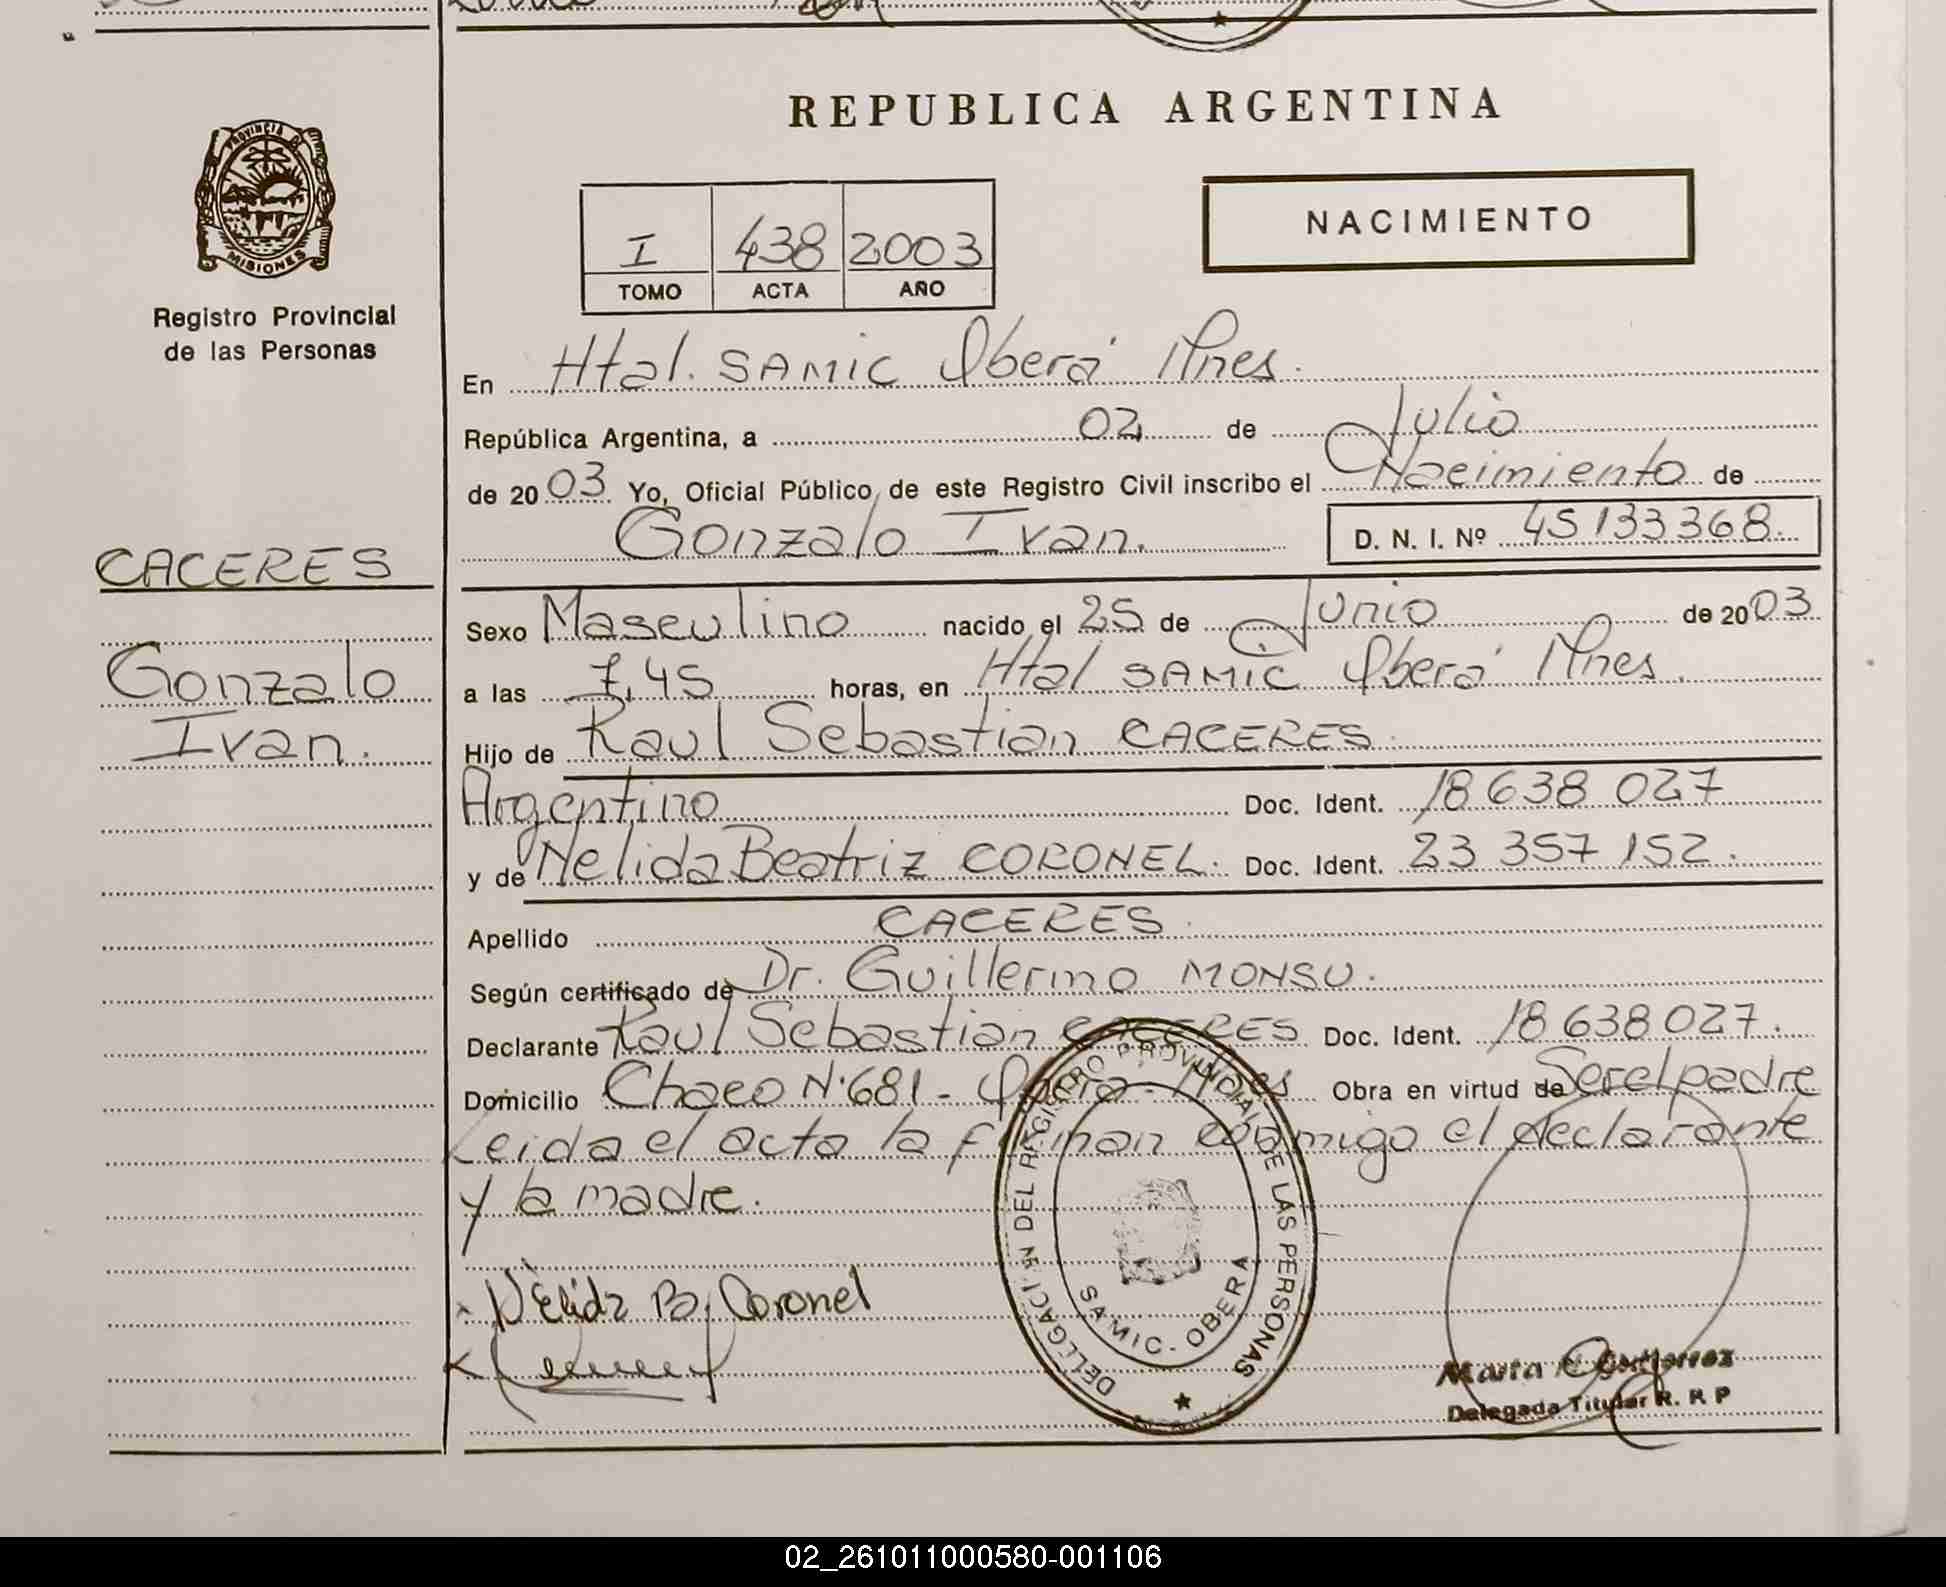 REPUBLICA ARGENTINA
PROVINCIA DE
MISIONES
Registro Provincial
de las Personas
NACIMIENTO
I 438 2003
TOMO ACTA AÑO
En Htal. SAMIC Oberá Mnes.
República Argentina, a 02 de Julio
de 2003 Yo, Oficial Público de este Registro Civil inscribo el Nacimiento de
Gonzalo Ivan. D. N. I. Nº 45133368.
CACERES
Gonzalo
Ivan.
Sexo Masculino nacido el 25 de Junio de 2003
a las 7,45 horas, en Htal SAMIC Oberá Mnes.
Hijo de Raul Sebastian CACERES.
Argentino Doc. Ident. 18 638 027
y de Nelida Beatriz CORONEL. Doc. Ident. 23 357 152.
Apellido CACERES.
Según certificado de Dr. Guillermo MONSU.
Declarante Raul Sebastian CACERES Doc. Ident. 18 638 027.
Domicilio Chaco Nº681 - Oberá - Mnes Obra en virtud de Ser el padre
Leida el acta la firman conmigo el declarante
y la madre.
Nélida B. Coronel
DELEGACION DEL REGISTRO PROVINCIAL DE LAS PERSONAS
SAMIC - OBERA
Marta N. Gutierrez
Delegada Titular R. R. P
02_261011000580-001106